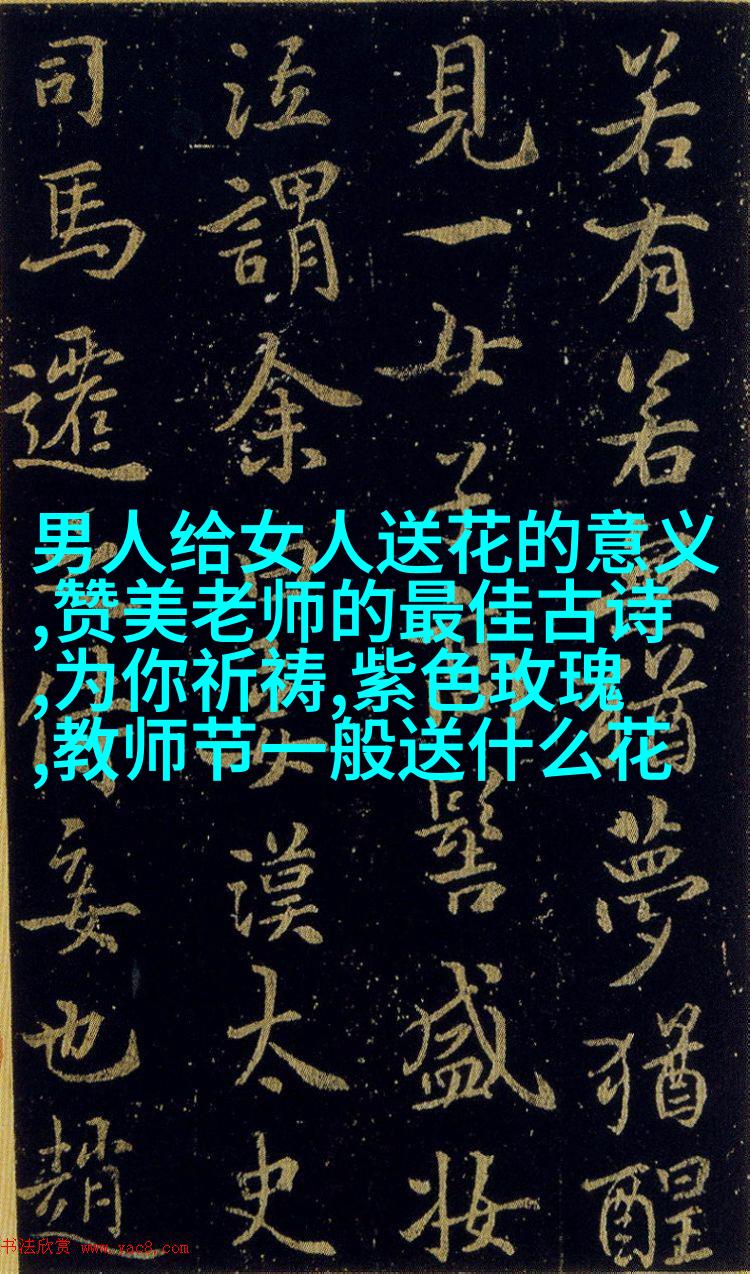 若有若無猶夢猶醒
見一女子高髻盛妝
泣謂余曰妾漢太史
司馬遷之侍妾也趙
男人给女人送花的意义
,赞美老师的最佳古诗
,为你祈祷,紫色玫瑰
,教师节一般送什么花
书法欣赏 www.yac8.com